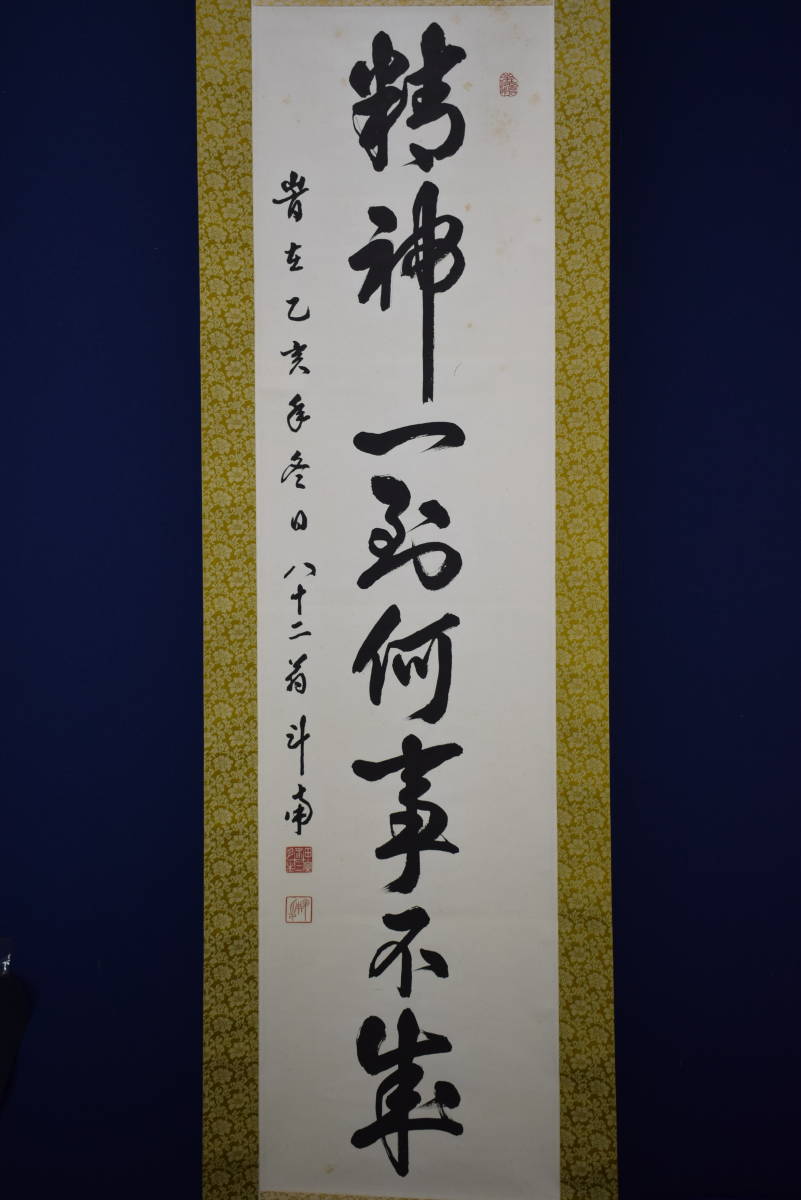 精神一到何事不成
昔在乙亥年冬日八十二翁斗南